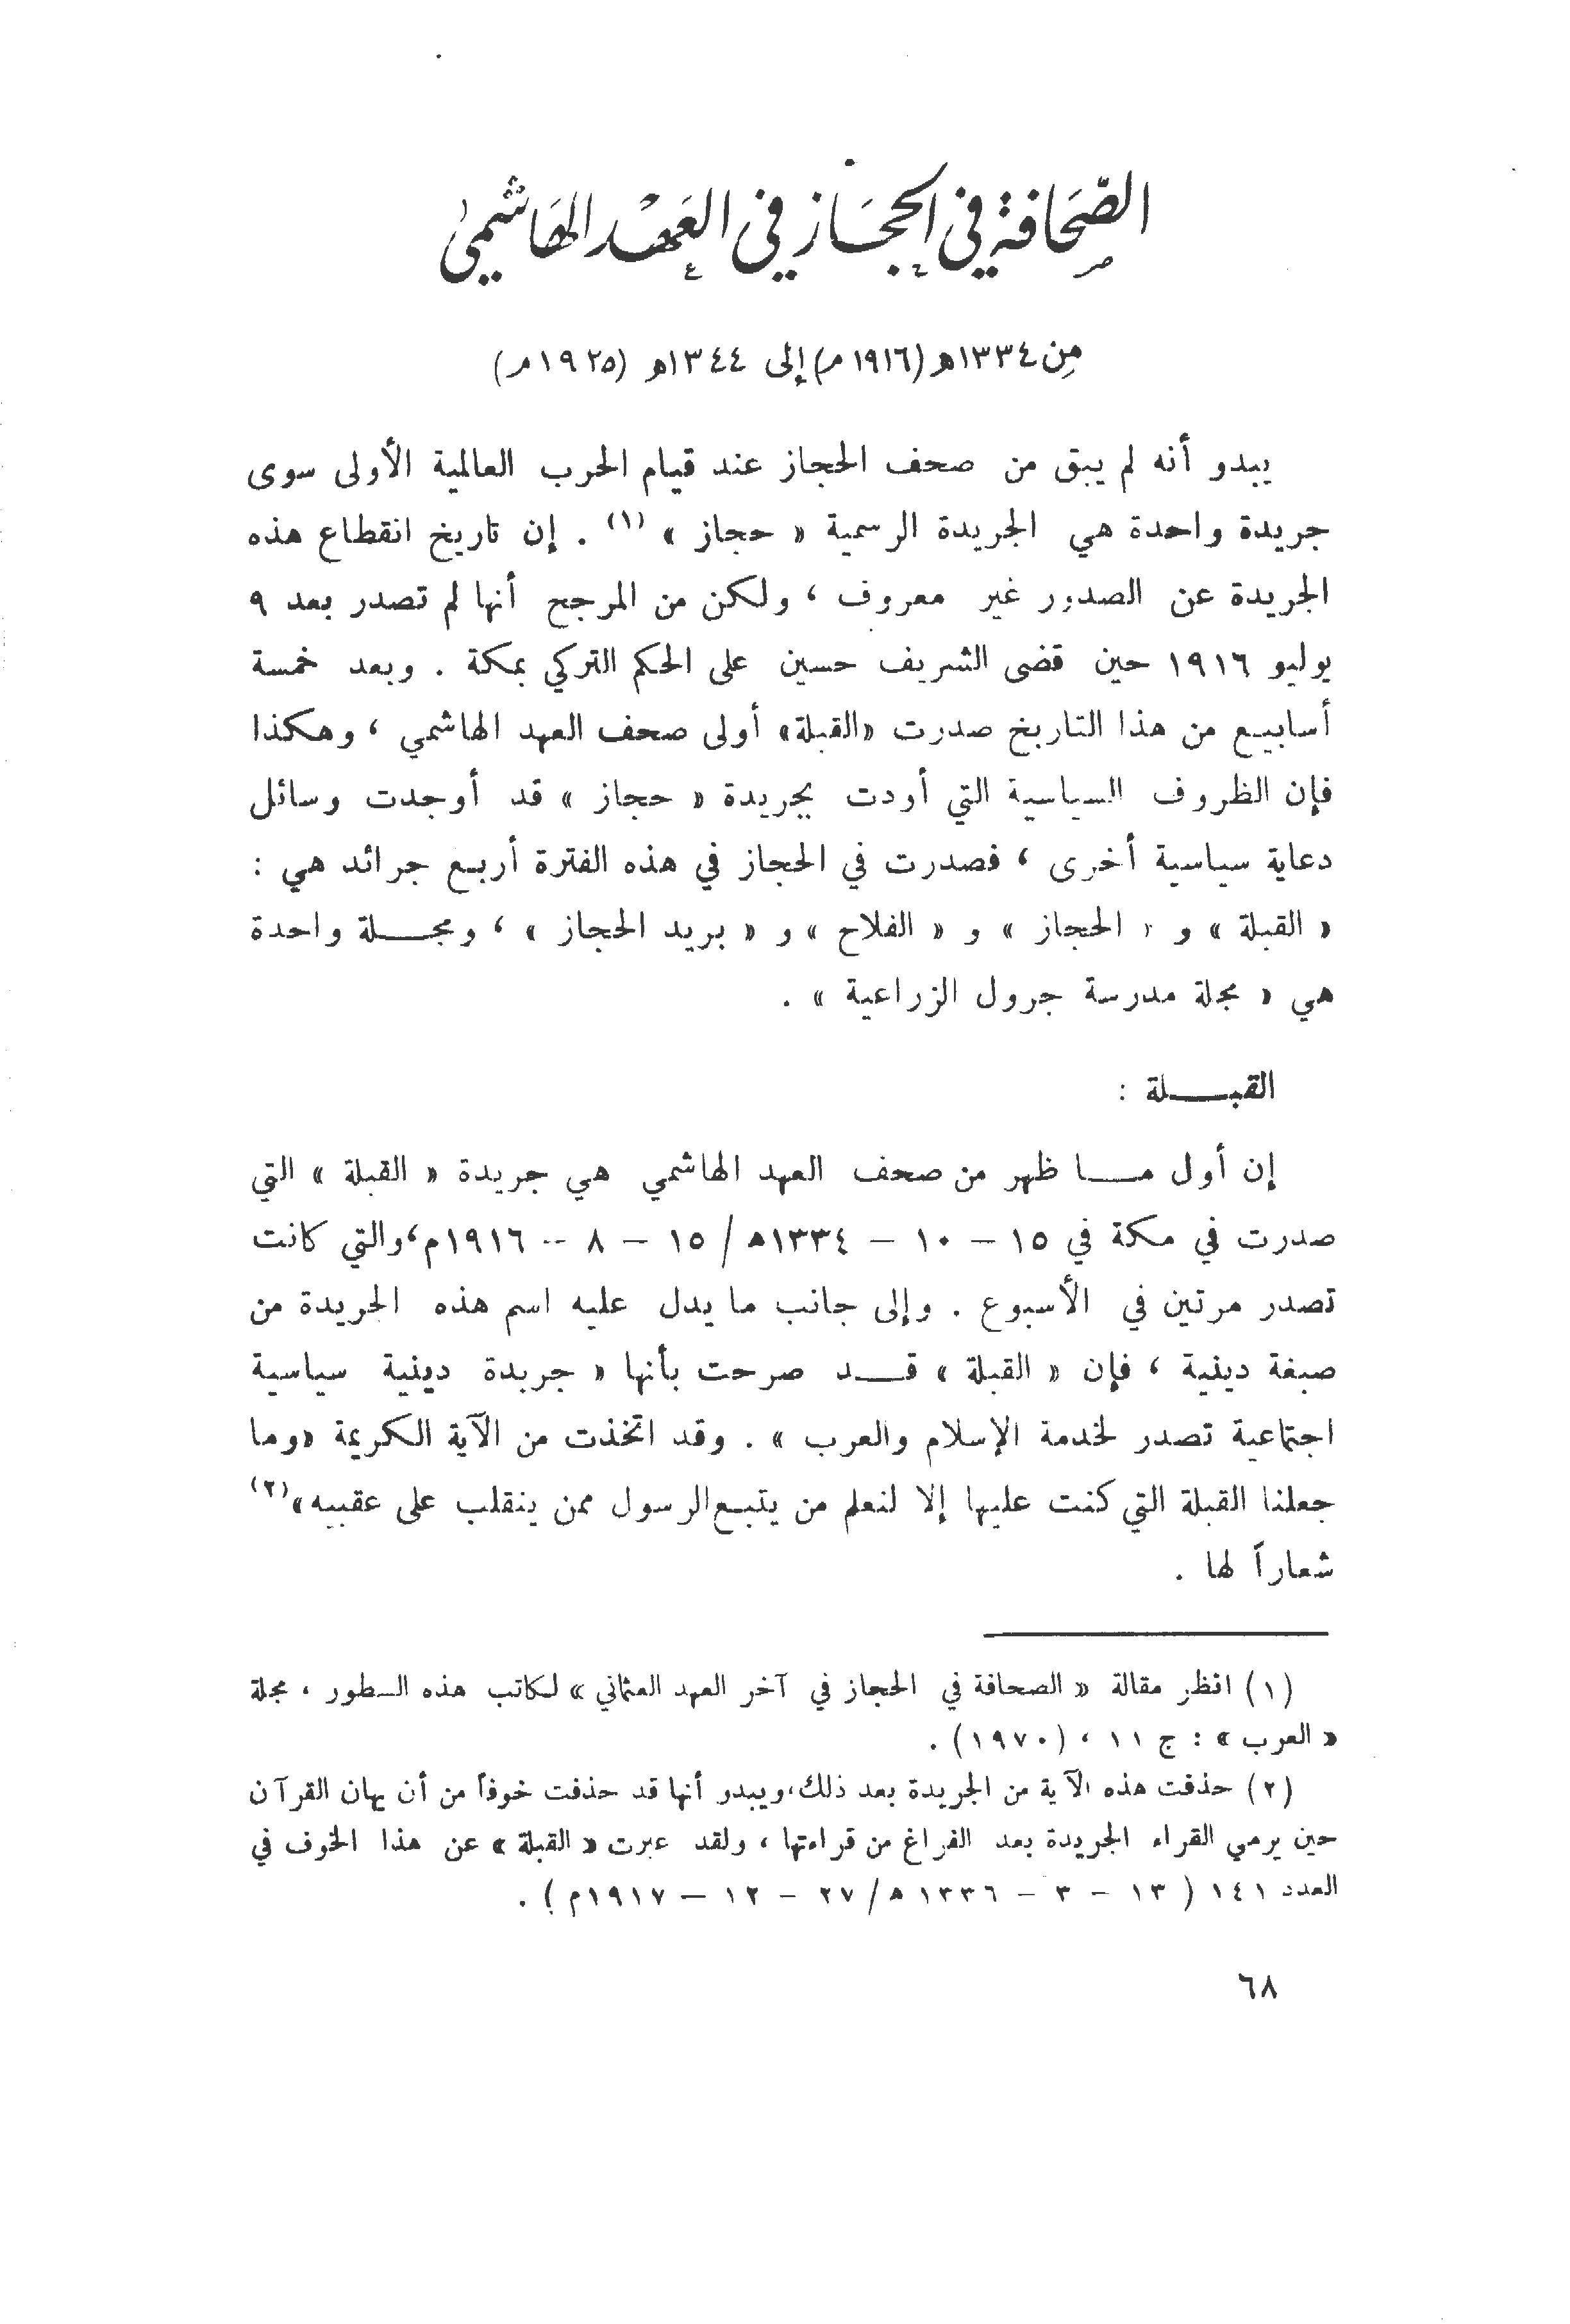 الصحافة في الحجاز في العهد الهاشمي
من ١٣٣٤هـ (١٩١٦م) إلى ١٣٤٤هـ (١٩٢٥م)
يبدو أنه لم يبق من صحف الحجاز عند قيام الحرب العالمية الأولى سوى
جريدة واحدة هي الجريدة الرسمية « حجاز » (١) . إن تاريخ انقطاع هذه
الجريدة عن الصدور غير معروف ، ولكن من المرجح أنها لم تصدر بعد ٩
يوليو ١٩١٦ حين قضى الشريف حسين على الحكم التركي بمكة . وبعد خمسة
أسابيع من هذا التاريخ صدرت «القبلة» أولى صحف العهد الهاشمي ، وهكذا
فإن الظروف السياسية التي أودت بجريدة « حجاز » قد أوجدت وسائل
دعاية سياسية أخرى ، فصدرت في الحجاز في هذه الفترة أربع جرائد هي :
« القبلة » و « الحجاز » و « الفلاح » و « بريد الحجاز » ، ومجلة واحدة
هي « مجلة مدرسة جرول الزراعية » .
القبلة :
إن أول ما ظهر من صحف العهد الهاشمي هي جريدة « القبلة » التي
صدرت في مكة في ١٥ – ١٠ – ١٣٣٤ه / ١٥ – ٨ – ١٩١٦م، والتي كانت
تصدر مرتين في الأسبوع . وإلى جانب ما يدل عليه اسم هذه الجريدة من
صبغة دينية ، فإن « القبلة » قد صرحت بأنها « جريدة دينية سياسية
اجتماعية تصدر لخدمة الإسلام والعرب » . وقد اتخذت من الآية الكريمة «وما
جعلنا القبلة التي كنت عليها إلا لنعلم من يتبع الرسول ممن ينقلب على عقبيه»(٢)
شعاراً لها .
(١) انظر مقالة « الصحافة في الحجاز في آخر العهد العثماني » لكاتب هذه السطور ، مجلة
« العرب » : ج ١١ ، (١٩٧٠) .
(٢) حذفت هذه الآية من الجريدة بعد ذلك، ويبدو أنها قد حذفت خوفاً من أن يهان القرآن
حين يرمي القراء الجريدة بعد الفراغ من قراءتها ، ولقد عبرت « القبلة » عن هذا الخوف في
العدد ١٤١ ( ١٣ – ٣ – ١٣٣٦ ه / ٢٧ – ١٢ – ١٩١٧م ) .
٦٨